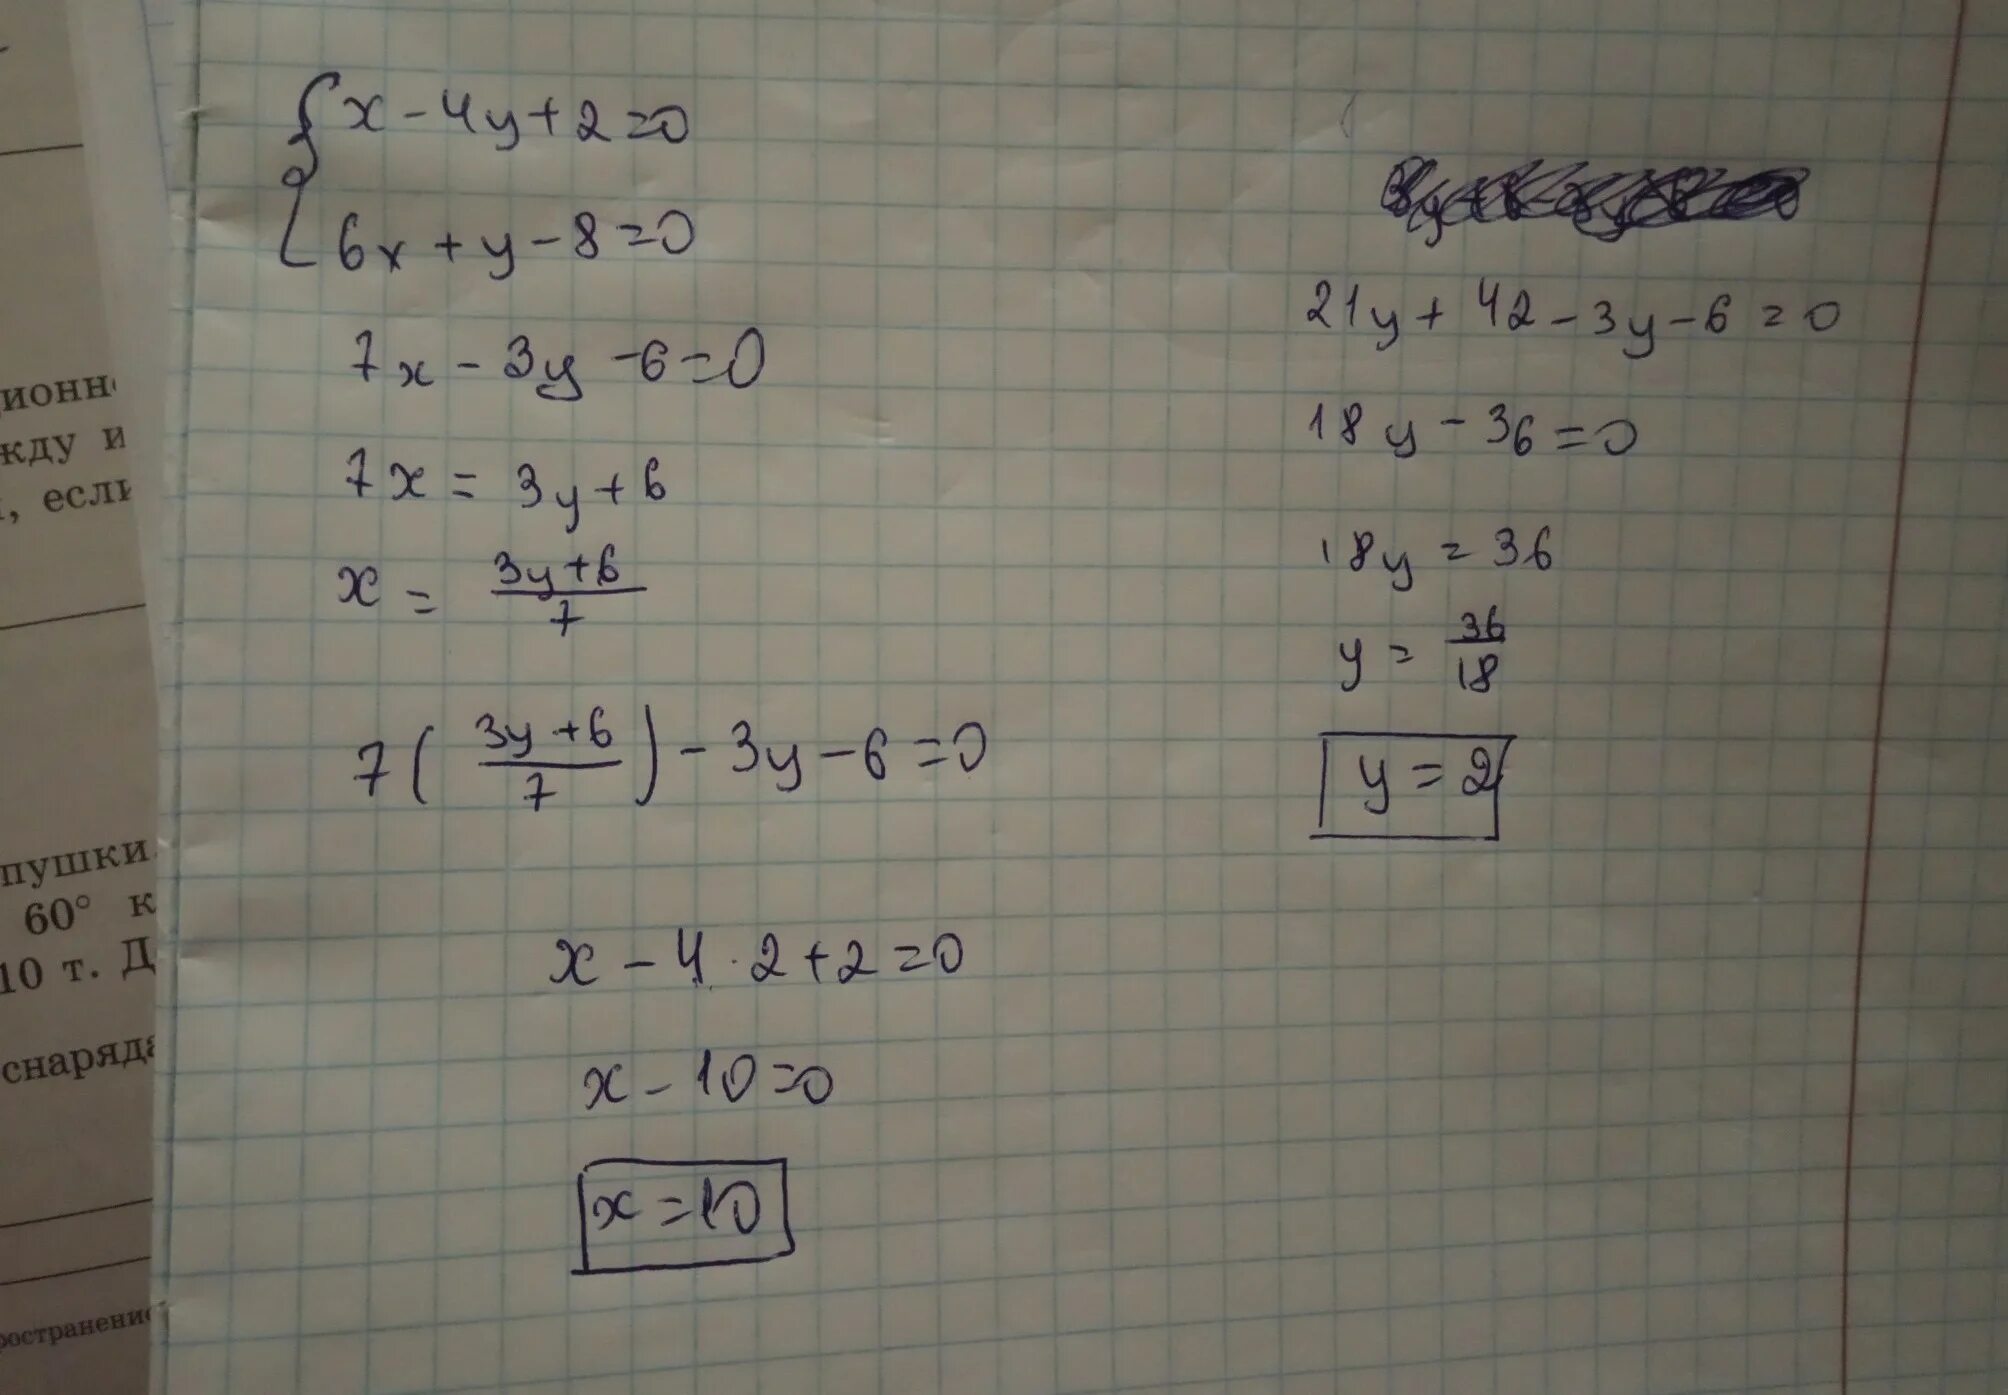 x - 4y + 2 = 0
6x + y - 8 = 0
7x - 3y - 6 = 0
7x = 3y + 6
x = \frac{3y + 6}{7}
7 ( \frac{3y + 6}{7} ) - 3y - 6 = 0
x - 4 · 2 + 2 = 0
x - 10 = 0
x = 10
21y + 42 - 3y - 6 = 0
18y - 36 = 0
18y = 36
y = \frac{36}{18}
y = 2
жду и
, если
пушки
60° к
10 т. Д
снаряда